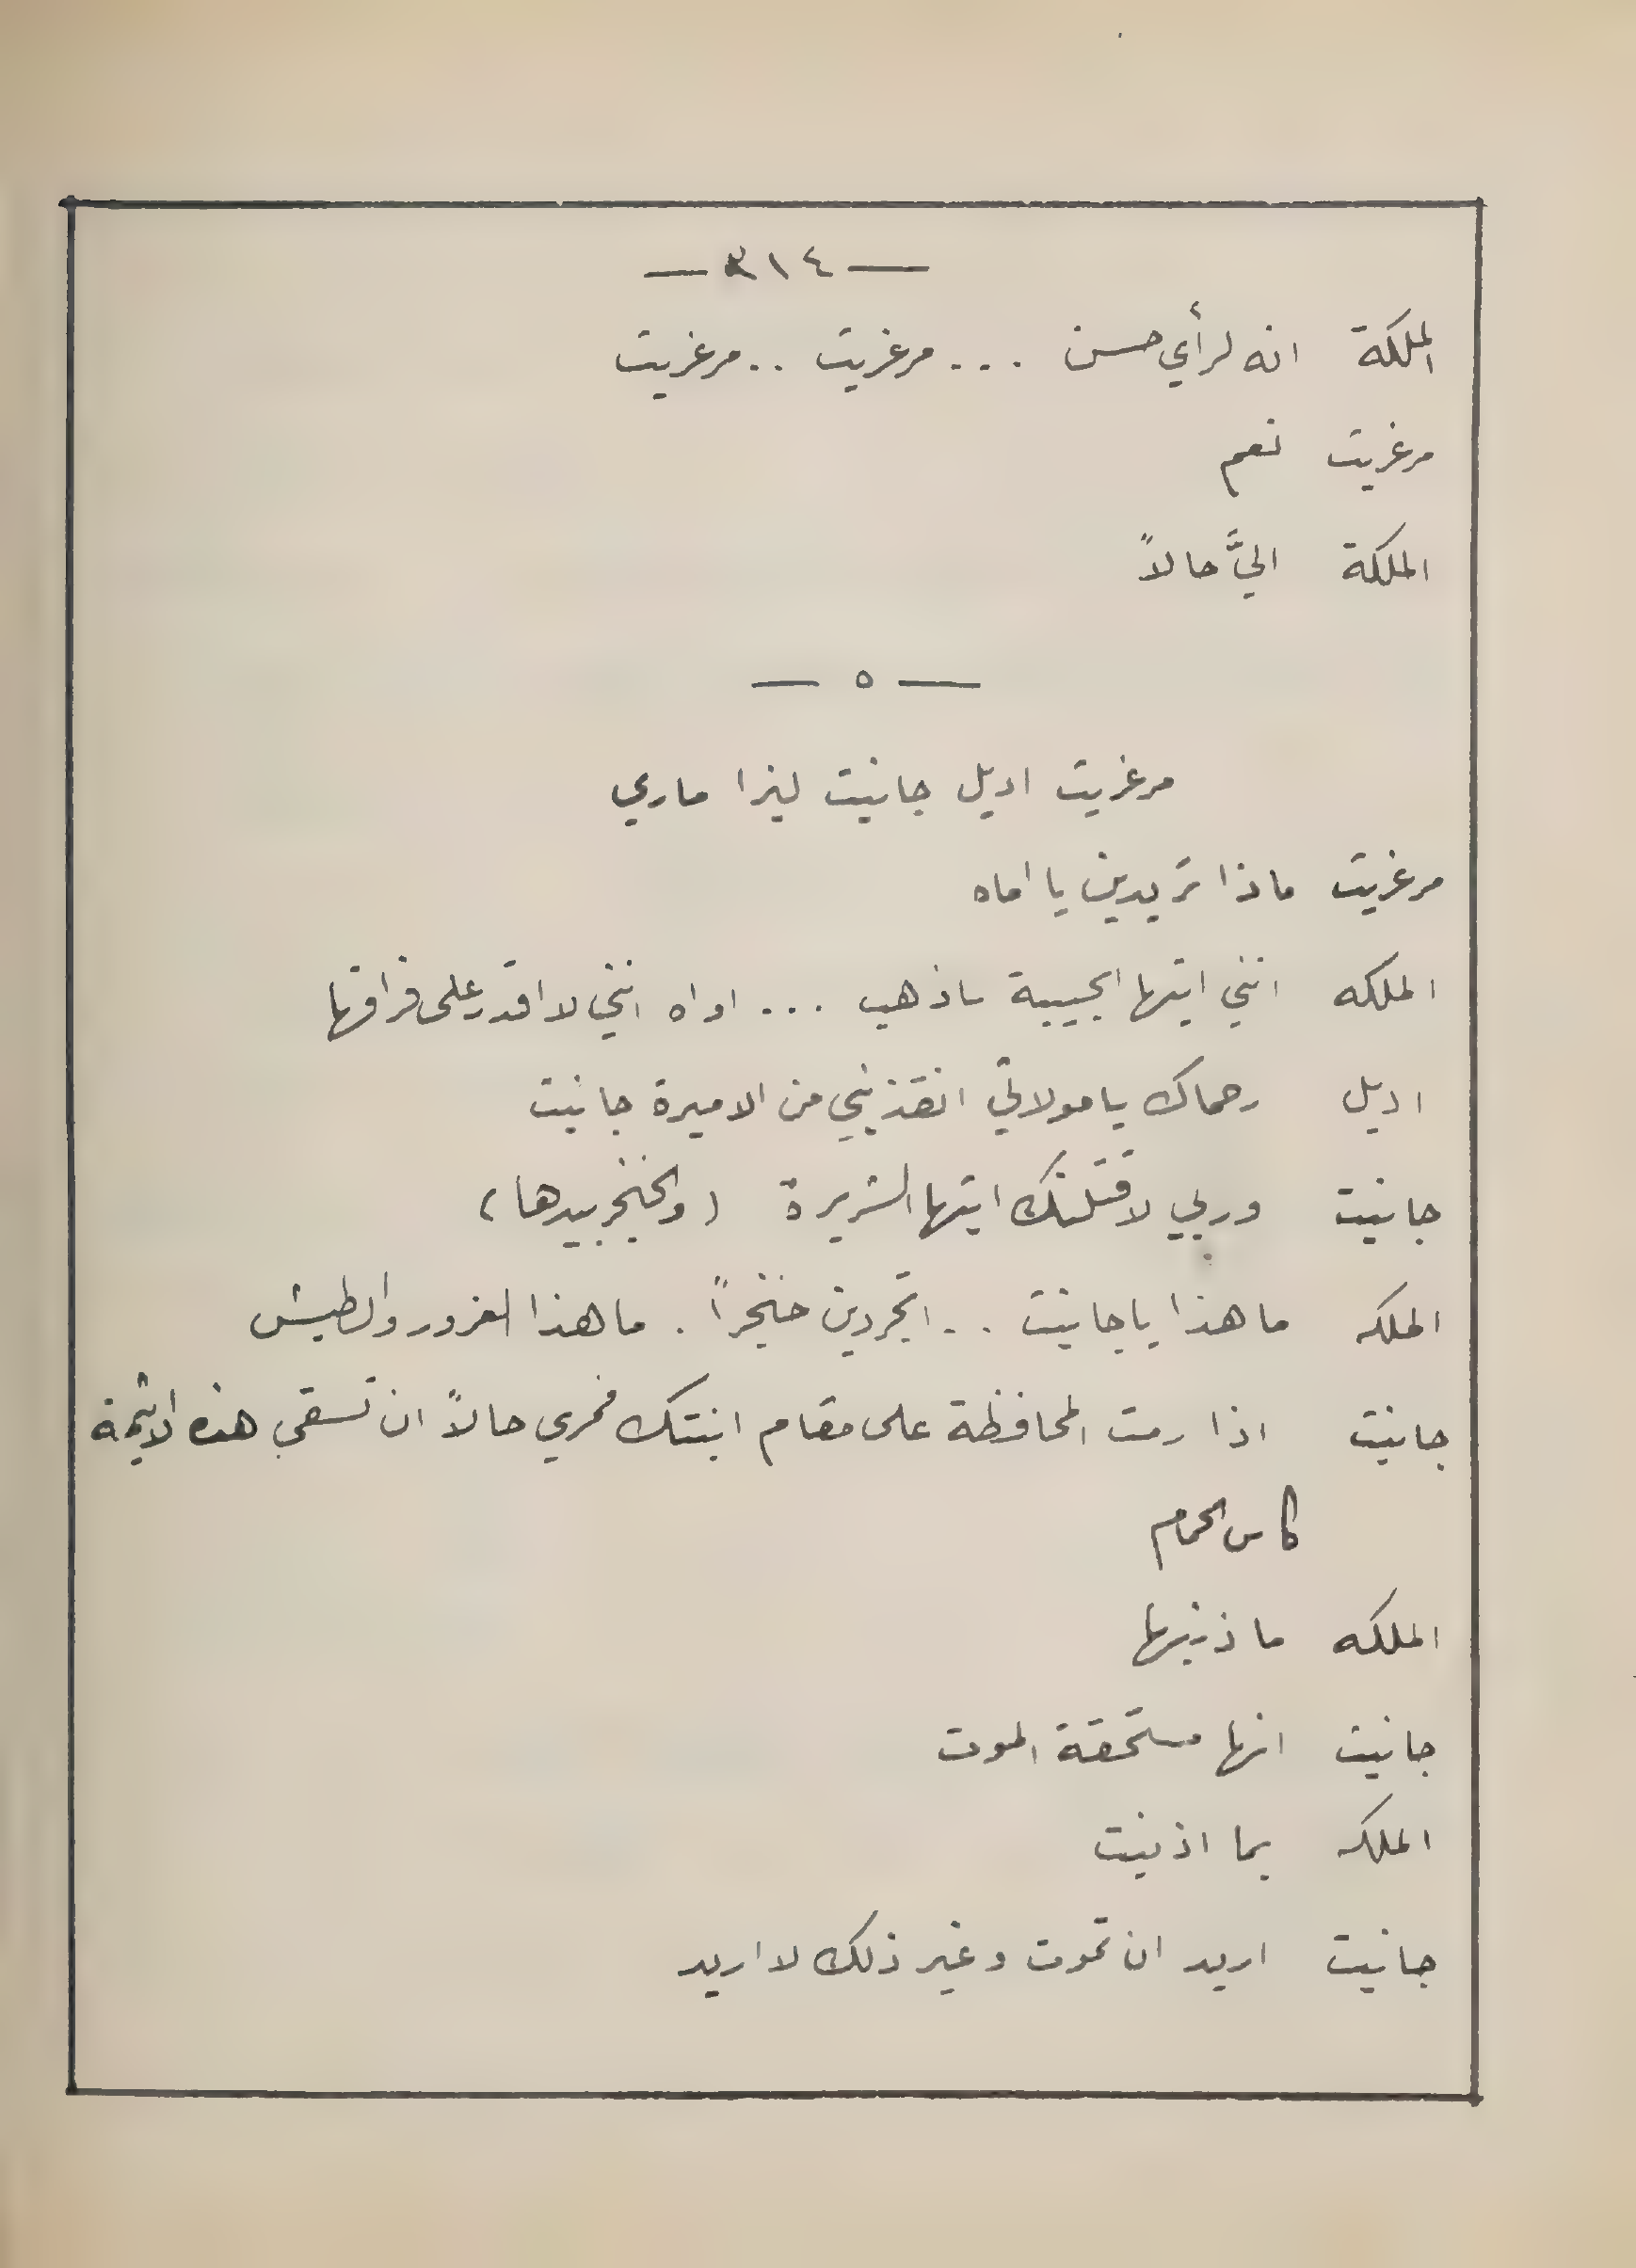 — ٣١٤ —
الملكة انه لرأي حسن ... مرغريت .. مرغريت
مرغريت نعم
الملكة اليَّ حالاً
— ٥ —
مرغريت اديل جانيت ليزا ماري
مرغريت ماذا تريدين يا اماه
الملكه انني ايتها الحبيبة ساذهب ... اواه انني لا اقدر على فراقها
اديل رحماك يا مولاتي انقذيني من الاميرة جانيت
جانيت وربي لاقتلنك ايتها الشريرة (والخنجر بيدها)
الملكه ما هذا يا جانيت .. اتجردين خنجراً . ما هذا الغرور والطيش
جانيت اذا رمت المحافظة على مقام ابنتك فمري حالاً ان تسقى هذه الاثيمة
كاس الحمام
الملكه ما ذنبها
جانيت انها مستحقة الموت
الملكه بما اذنبت
جانيت اريد ان تموت وغير ذلك لا اريد